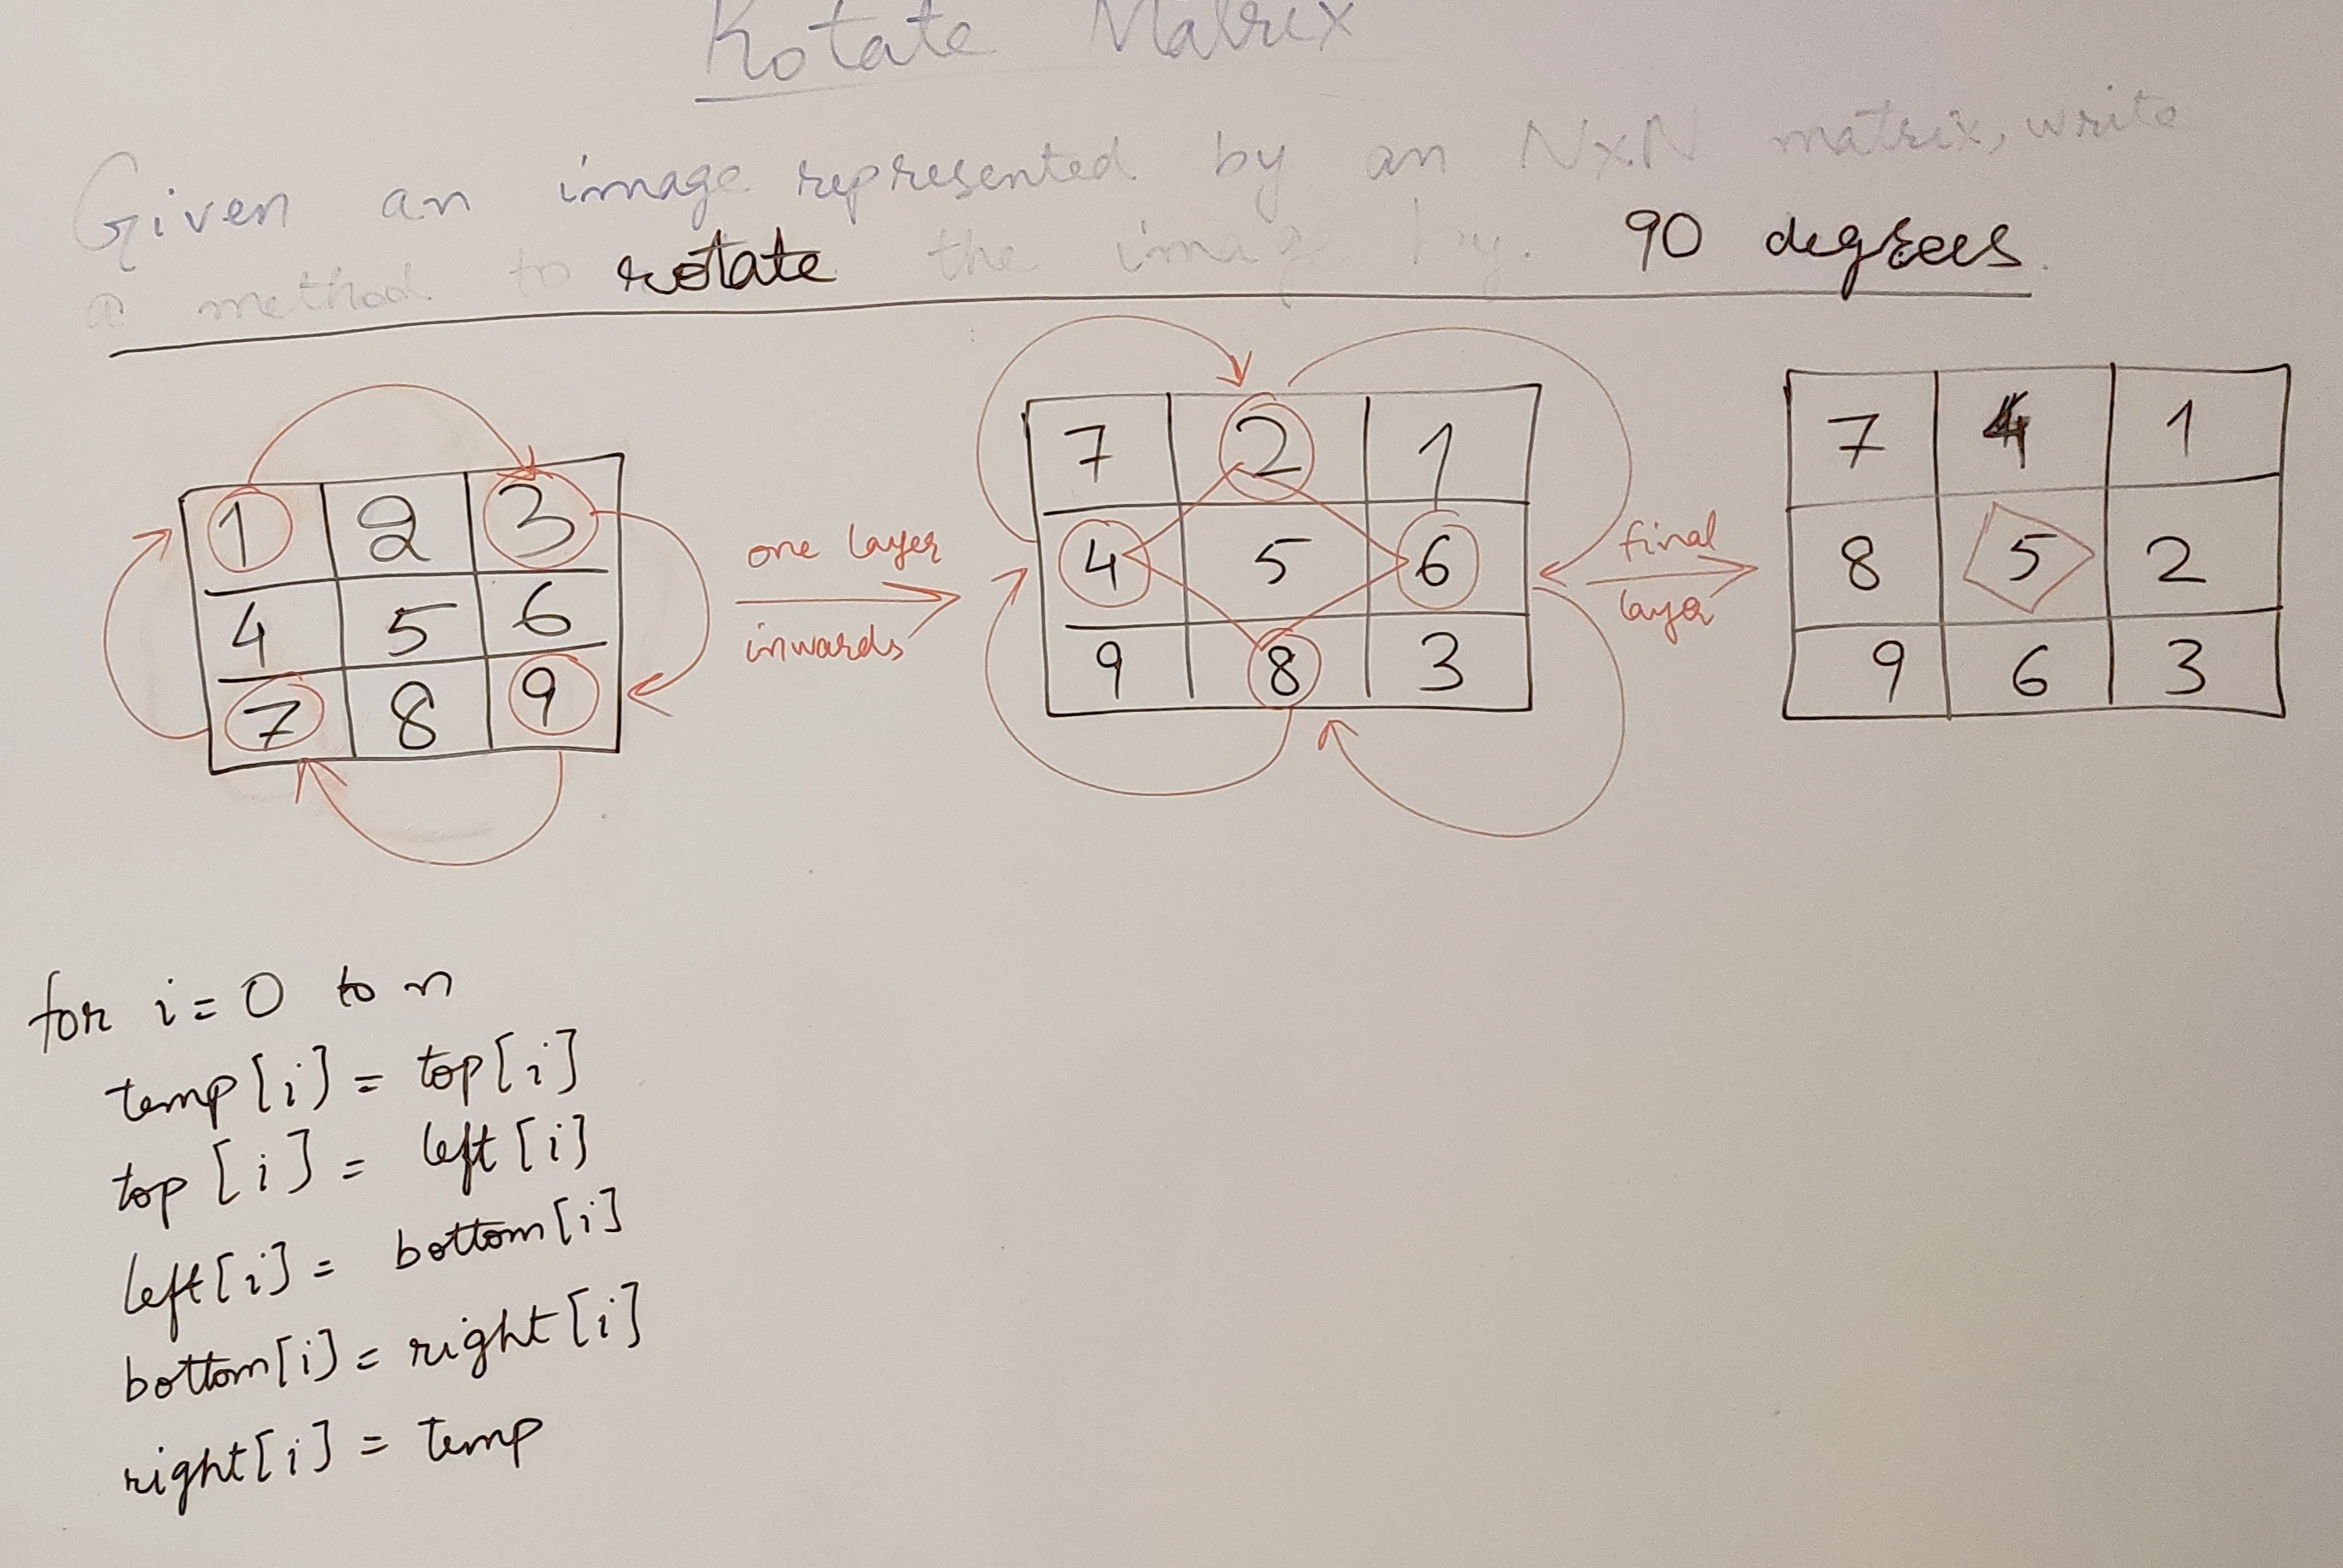 Rotate Matrix
Given an image represented by an NxN matrix, write
a method to rotate the image by. 90 degrees.
1 2 3
4 5 6
7 8 9
one layer
inwards
7 2 1
4 5 6
9 8 3
final
layer
7 4 1
8 5 2
9 6 3
for i = 0 to n
temp[i] = top[i]
top[i] = left[i]
left[i] = bottom[i]
bottom[i] = right[i]
right[i] = temp